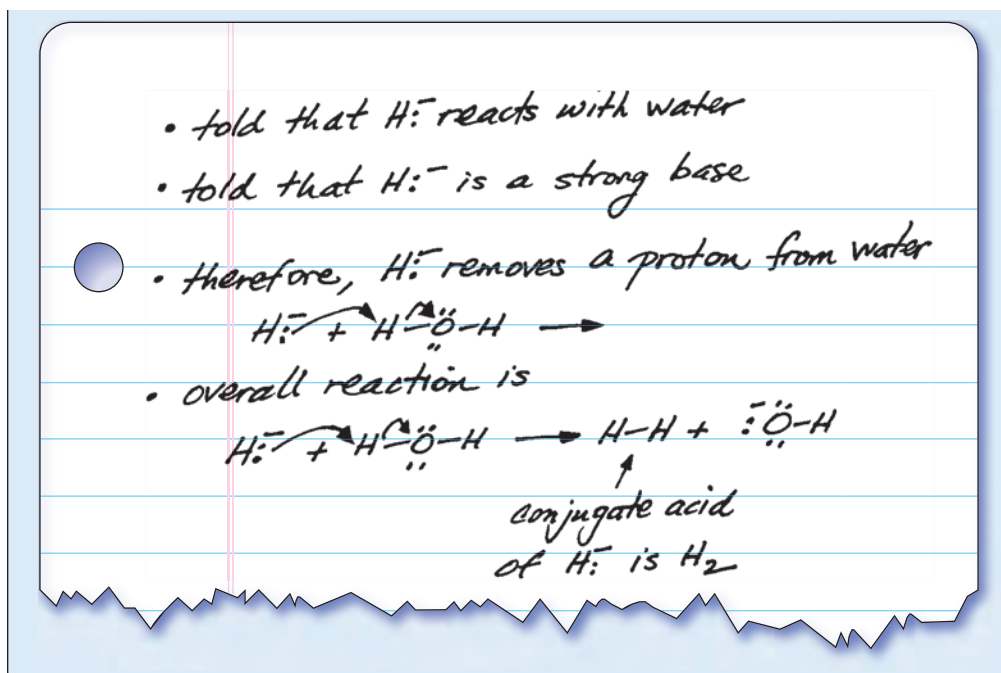 • told that H:⁻ reacts with water
• told that H:⁻ is a strong base
• therefore, H:⁻ removes a proton from water
H:⁻ + H–Ö̤–H ⟶
• overall reaction is
H:⁻ + H–Ö̤–H ⟶ H–H + ⁻:Ö̤–H
↑
conjugate acid
of H:⁻ is H₂